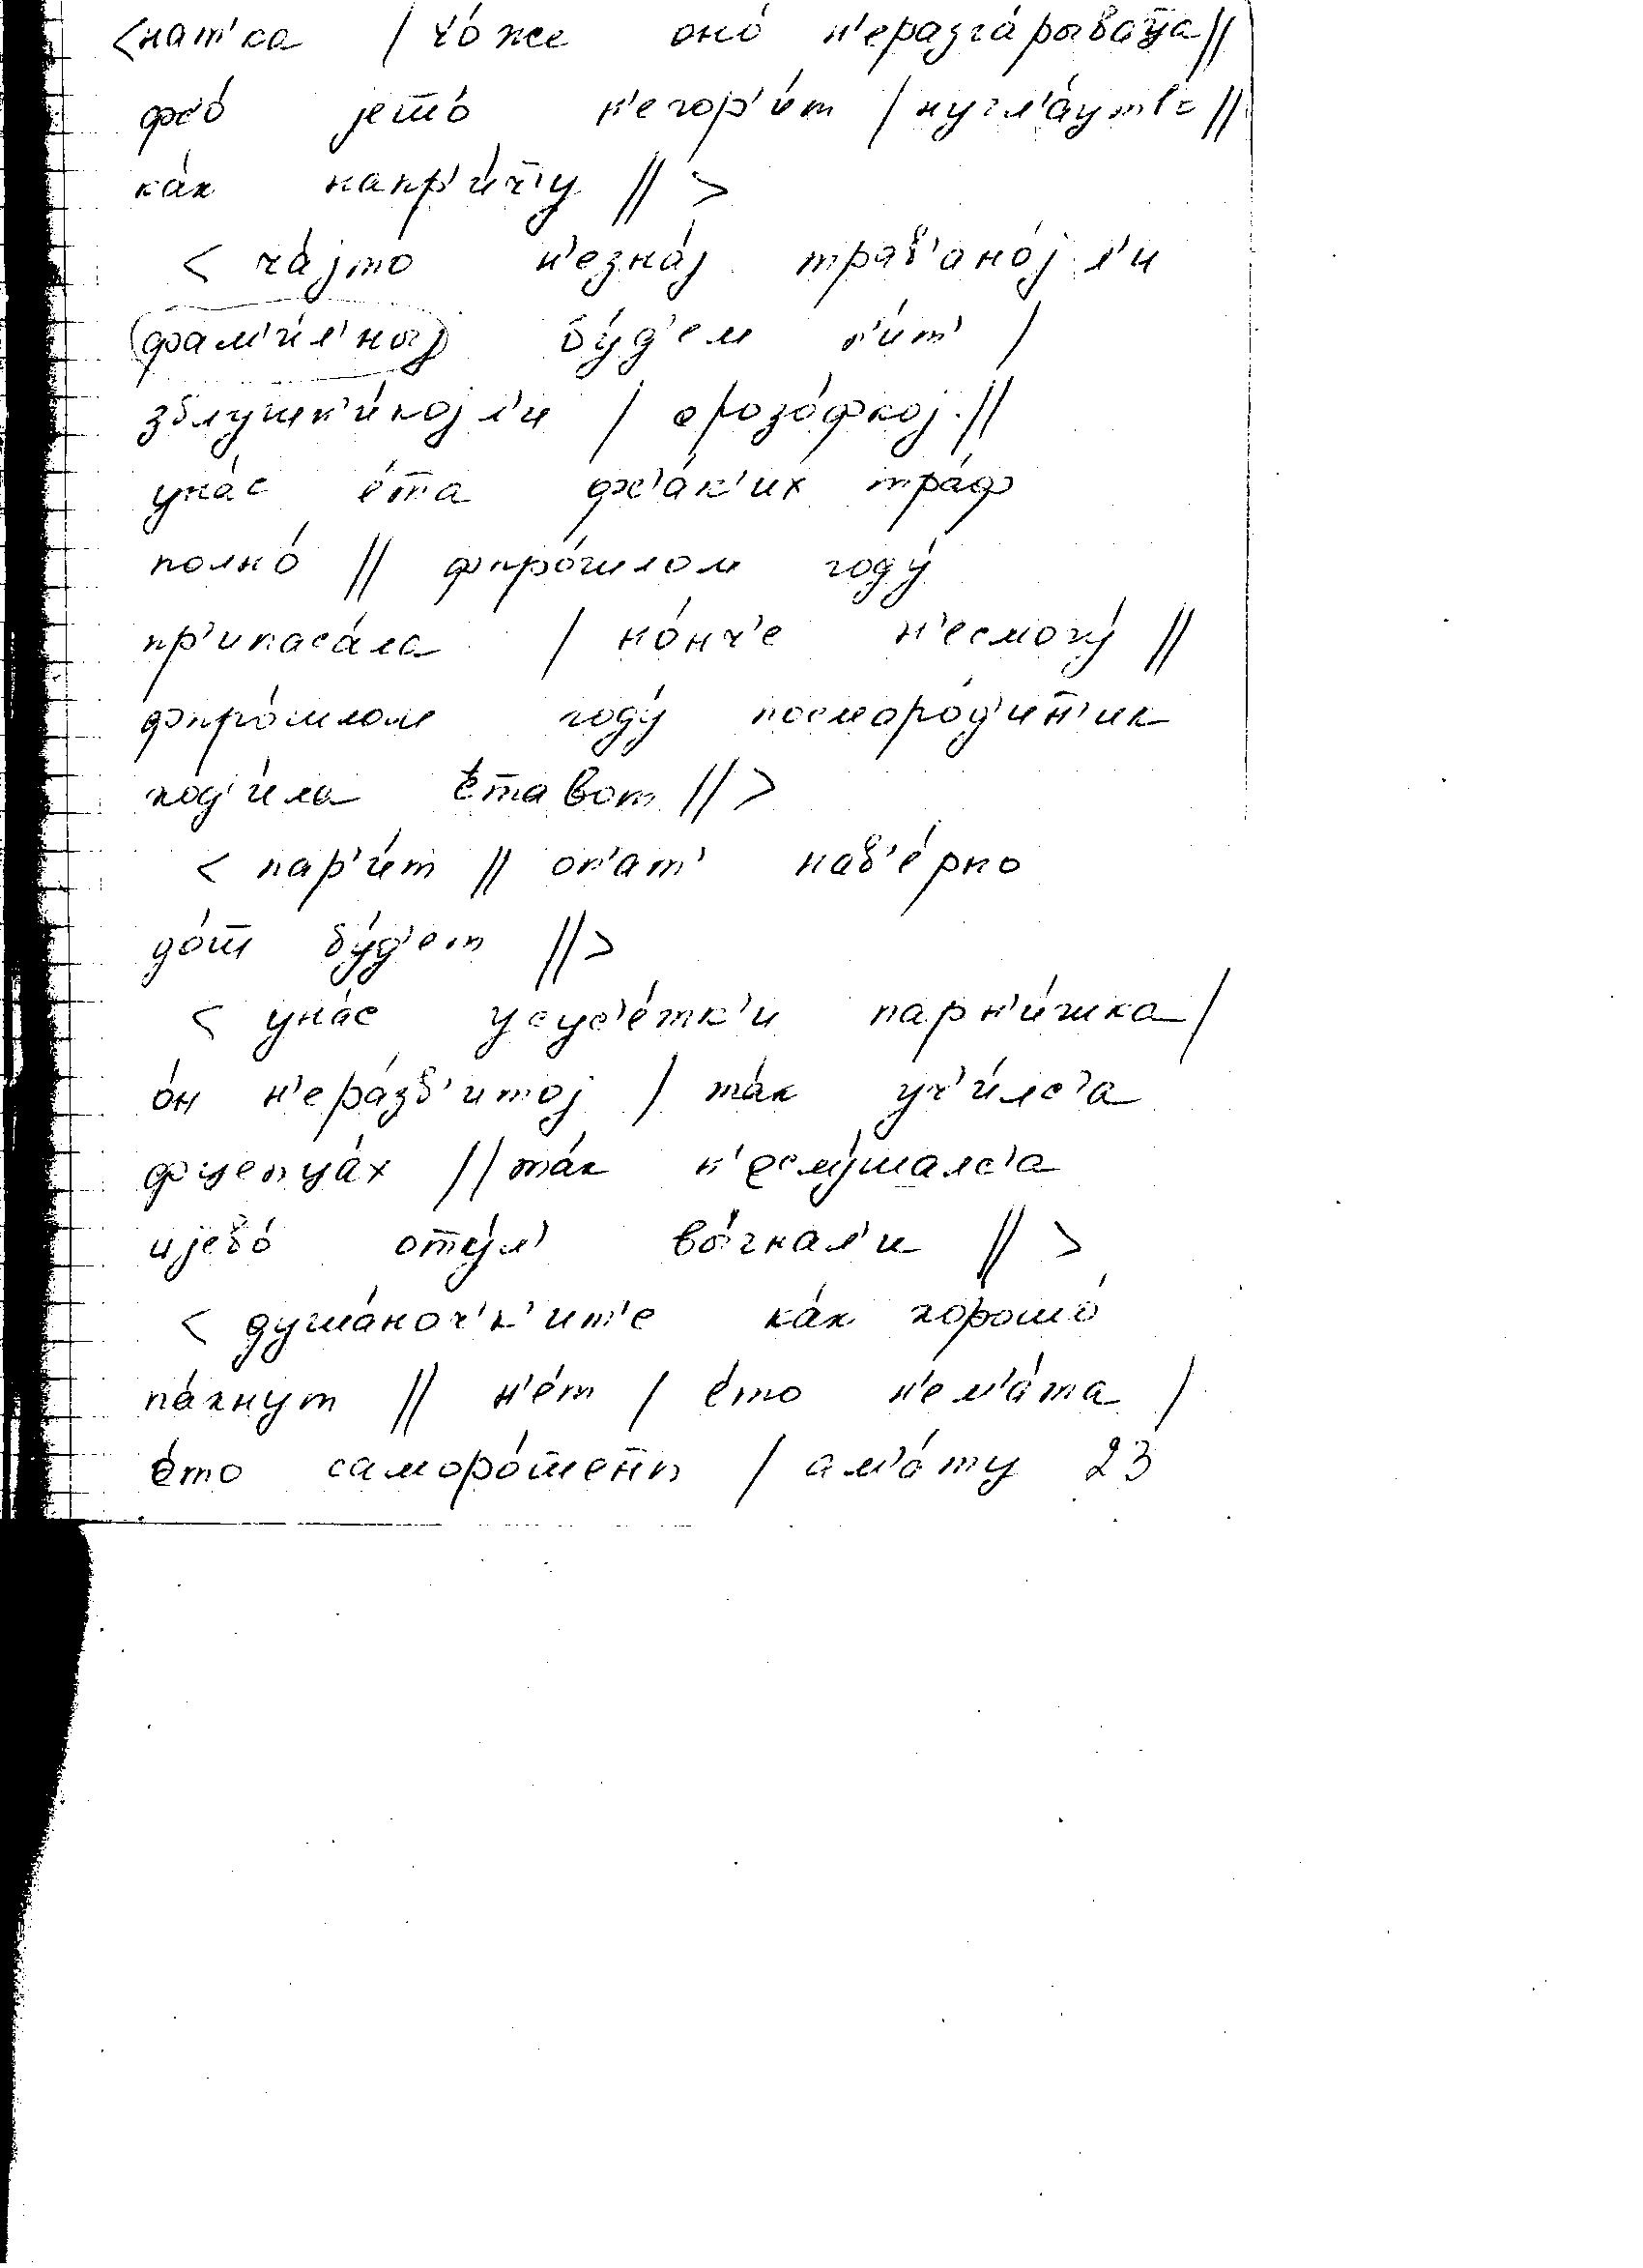 <нат'ка / чо́же оно́ н'еразга́рываца̄ //
фс'о́ јето̄́ н'егор'и́т / нугл'а́ут'е //
ка́к напр'и́ч̄у // >
< ча́јто н'езна́ј трав'ано́ј л'и
фам'и́л'ныј бу́д'ем п'и́т' /
зблушн'и́кој л'и / срозо́фкој //
уна́с е́т̄а фс'а́к'их тра́ф
полно́ // фпро́шлом году́
пр'ипаса́ла / но́нч'е н'есмогу́ //
фпро́шлом году́ посморо́д'ин̄'ик
ход'и́ла е́т̄а вот // >
< пар'и́т // оп'ат' нав'е́рно
до́ш̄ бу́д'ет // >
< уна́с усус'е́тк'и парн'и́шка /
о́н н'ера́зв'итој / та́к уч'и́лс'а
фцепца́х // та́к н'еслу́шалс'а
ијево́ от̄у́л' вы́гнал'и // >
< душа́ноч'к'ит'е ка́к хорошо́
па́хнут // н'е́т / е́то н'ем'а́та /
е́то саморо́ш̄ен̄п / ам'а́ту 23